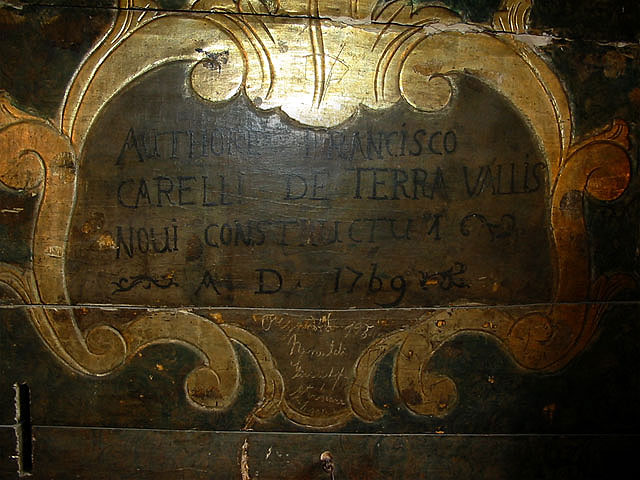 AUTHORE FRANCISCO
CARELLI DE TERRA VALLIS
NOUI CONSTRUCTUM
A. D. 1769